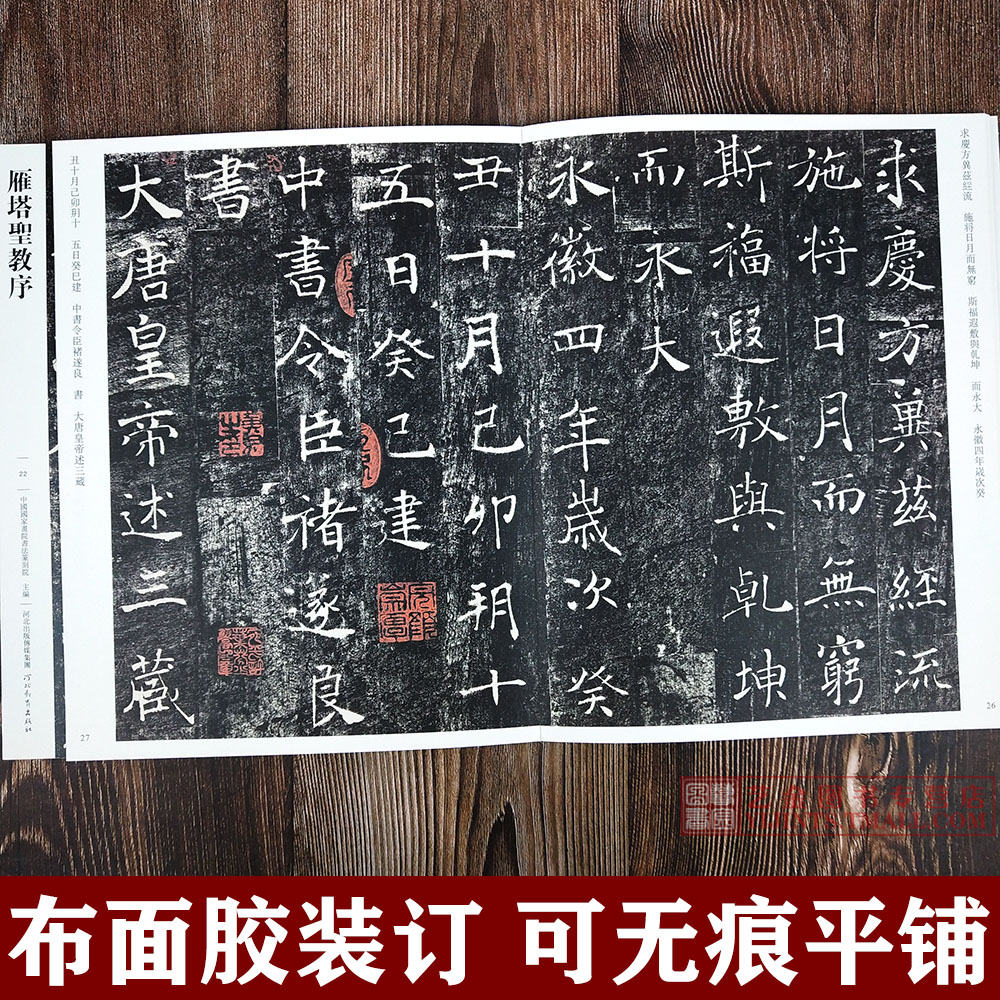 求慶方異茲經流　施将日月而無窮　斯福遐敷與乹坤　而永大　永徽四年歲次癸
求慶方冀茲經流
施将日月而無窮
斯福遐敷與乹坤
而永大
永徽四年歲次癸
丑十月己卯朔十
五日癸巳建
中書令臣褚遂良
書
大唐皇帝述三藏
丑十月己卯朔十　五日癸巳建　中書令臣褚遂良　書　大唐皇帝述三藏
26
27
雁塔聖教序
22
中國國家畫院書法篆刻院　主編
河北出版傳媒集團
河北教育出版社
布面胶装订 可无痕平铺